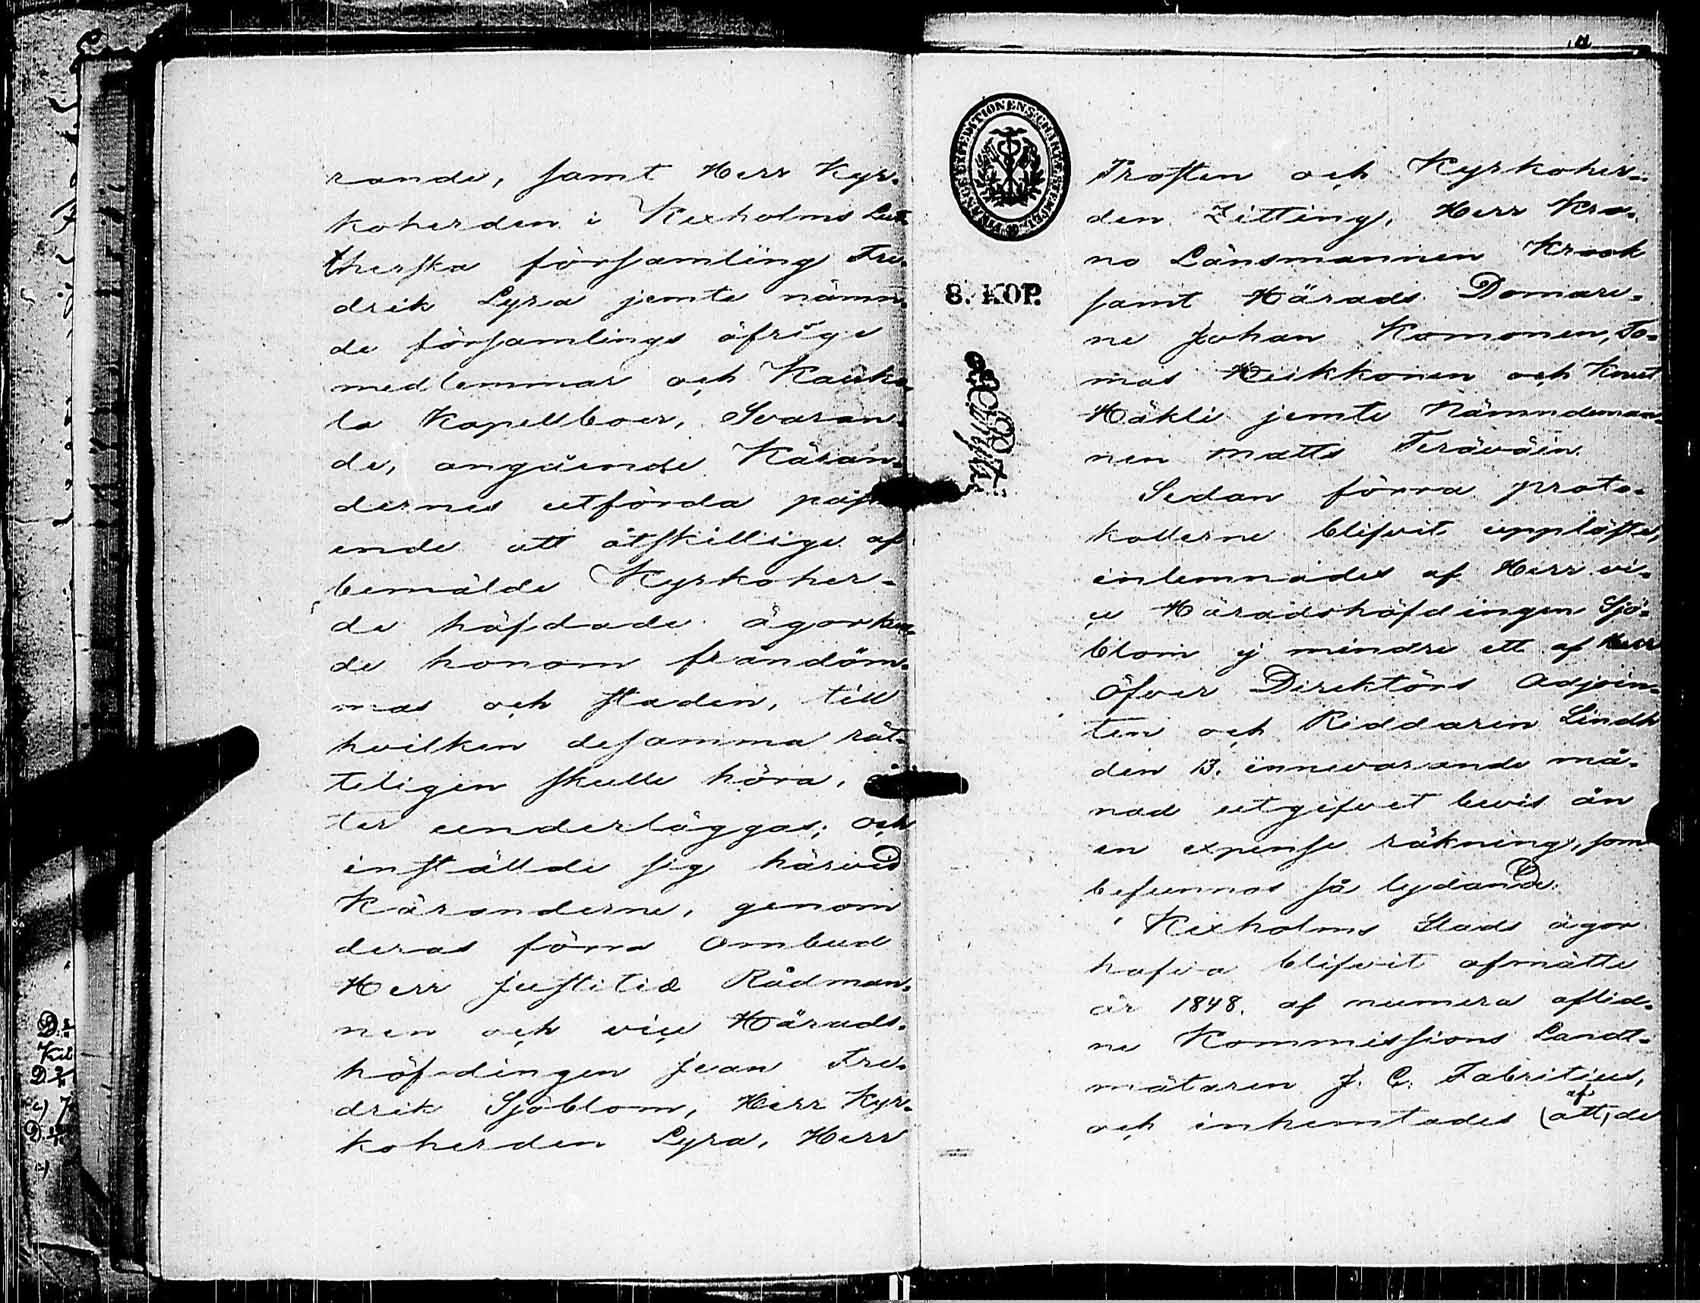 rande, samt Herr Kyr-
koherden i Kexholms Lut-
therska församling Fre-
drik Lyra jemte nämn-
de församlings öfrige
medlemmar och Kauko-
la Kapellboer, Svaran-
de, angående Käran-
dernes utförda påst-
ende att åtskillige af
bemälde Kyrkoher-
de häfdade ägor
de honom fråndöm-
mas och staden, till
hvilken desamma rät-
teligen skulle höra,
ter underläggas; och
inställde sig härvid
Käranderne, genom
deras förra Ombud
Herr Justitiæ Rådman-
nen och vice Härads-
höfdingen Jean Fre-
drik Sjöblom, Herr Kyr-
koherden Lyra, Herr
8. KOP.
Prosten och Kyrkoher-
den Zitting, Herr Kro-
no Länsmannen Krook
samt Härads Domare-
ne Johan Komonen, To-
mas Heikkonen och Knut
Häkli jemte Nämndeman-
nen Matts Teräväin.
Sedan förra proto-
kollerne blifvit uppläste,
inlemnades af Herr vi-
ce Häradshöfdingen Sjö-
blom ej mindre ett af Herr
Öfver Direktörs Adjoin-
ten och Riddaren Lindh
den 13. innevarande må-
nad utgifvet bevis än
en expense räkning, som
befunnos så lydande:
Kexholms Stads ägor
hafva blifvit afmätte
år 1848. af numera aflid-
ne Kommissions Landt-
mätaren J. C. Fabritius,
och inhemtades (att, af de